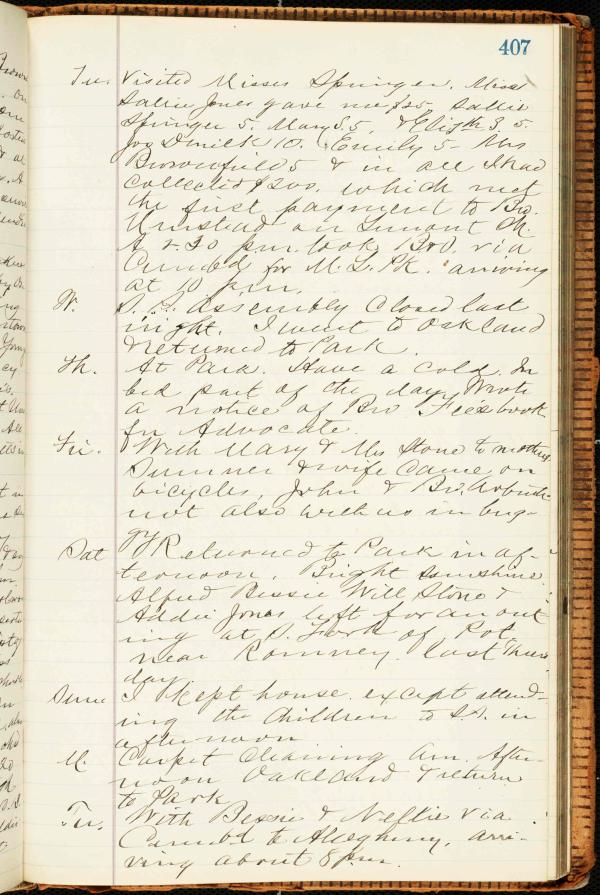 407
Tu. Visited Misses Springer. Miss
Sallie Jones gave me $25. Sallie
Springer 5. Mary S. 5, & Elizth S. 5.
Jos 10. Emily 5 - Mrs
Brownfield 5 & in all I had
collected $200. which met
the first payment to Bro.
Umstead on Lemont Ch.
At 2.30 p.m. took B&O. via
Cumbd, for M. L. Pk. arriving
at 10 p.m.
W. S. S. Assembly closed last
night. I went to Oakland
& returned to Park.
Th. At Park. Have a cold. In
bed part of the day. Wrote
a notice of Bro Fee's book
for Advocate.
Fri. With Mary & Mrs Stone to mothers
Sumner & wife came on
bicycles, John & Bro. Arbuth-
not also with us in bug-
gy
Sat Returned to Park in af-
ternoon. Bright sunshine.
Alfred Bessie Will Stone &
Addie Jones left for an out
ing at S. Fork of Pot.
near Romney. last Thurs
day.
I kept house. except attend-
ing the children to S.S. in
afternoon
M. Carpet cleaning a.m. After-
noon Oakland & return
to Park
Tu. With Bessie & Nellie via
Cumbd to Allegheny, arri-
ving about 8 p.m.